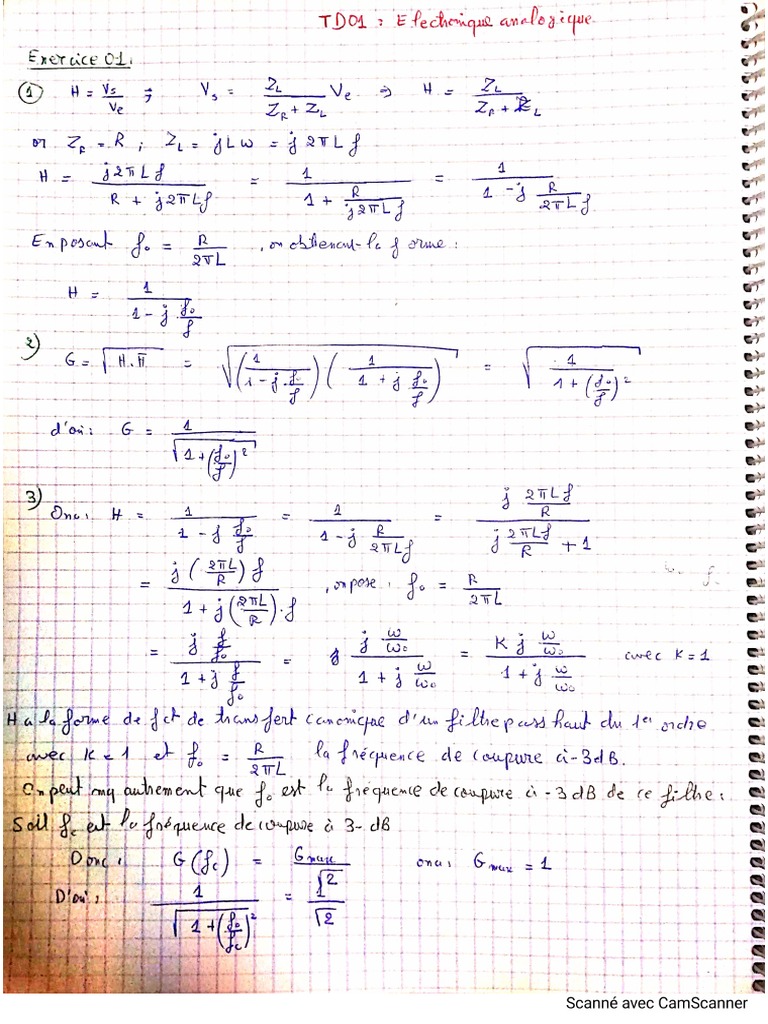 TD01 : Electronique analogique
Exercice 01:
① H = Vs/Ve ; Vs = ZL/(ZR + ZL) Ve ⇒ H = ZL/(ZR + ZL)
or ZR = R ; ZL = jLω = j2πLf
H = j2πLf/(R + j2πLf) = 1/(1 + R/(j2πLf)) = 1/(1 - j R/(2πLf))
En posant f₀ = R/(2πL), on obtient la forme :
H = 1/(1 - j f₀/f)
2) G = √(H.H̅) = √((1/(1 - j f₀/f))(1/(1 + j f₀/f))) = √(1/(1 + (f₀/f)²))
d'où : G = 1/√(1 + (f₀/f)²)
3) On a : H = 1/(1 - j f₀/f) = 1/(1 - j R/(2πLf)) = (j 2πLf/R)/(j 2πLf/R + 1)
= j(2πL/R)f/(1 + j(2πL/R).f) , on pose : f₀ = R/(2πL)
= (j f/f₀)/(1 + j f/f₀) = (j ω/ω₀)/(1 + j ω/ω₀) = (K j ω/ω₀)/(1 + j ω/ω₀) avec K = 1
H a la forme de fct de transfert canonique d'un filtre pass haut du 1er ordre
avec K = 1 et f₀ = R/(2πL) la fréquence de coupure à -3dB.
On peut mq autrement que f₀ est la fréquence de coupure à -3dB de ce filtre :
Soit fc est la fréquence de coupure à 3-dB
Donc : G(fc) = Gmax/√2 on a : Gmax = 1
D'où : 1/√(1 + (f₀/fc)²) = 1/√2
Scanné avec CamScanner